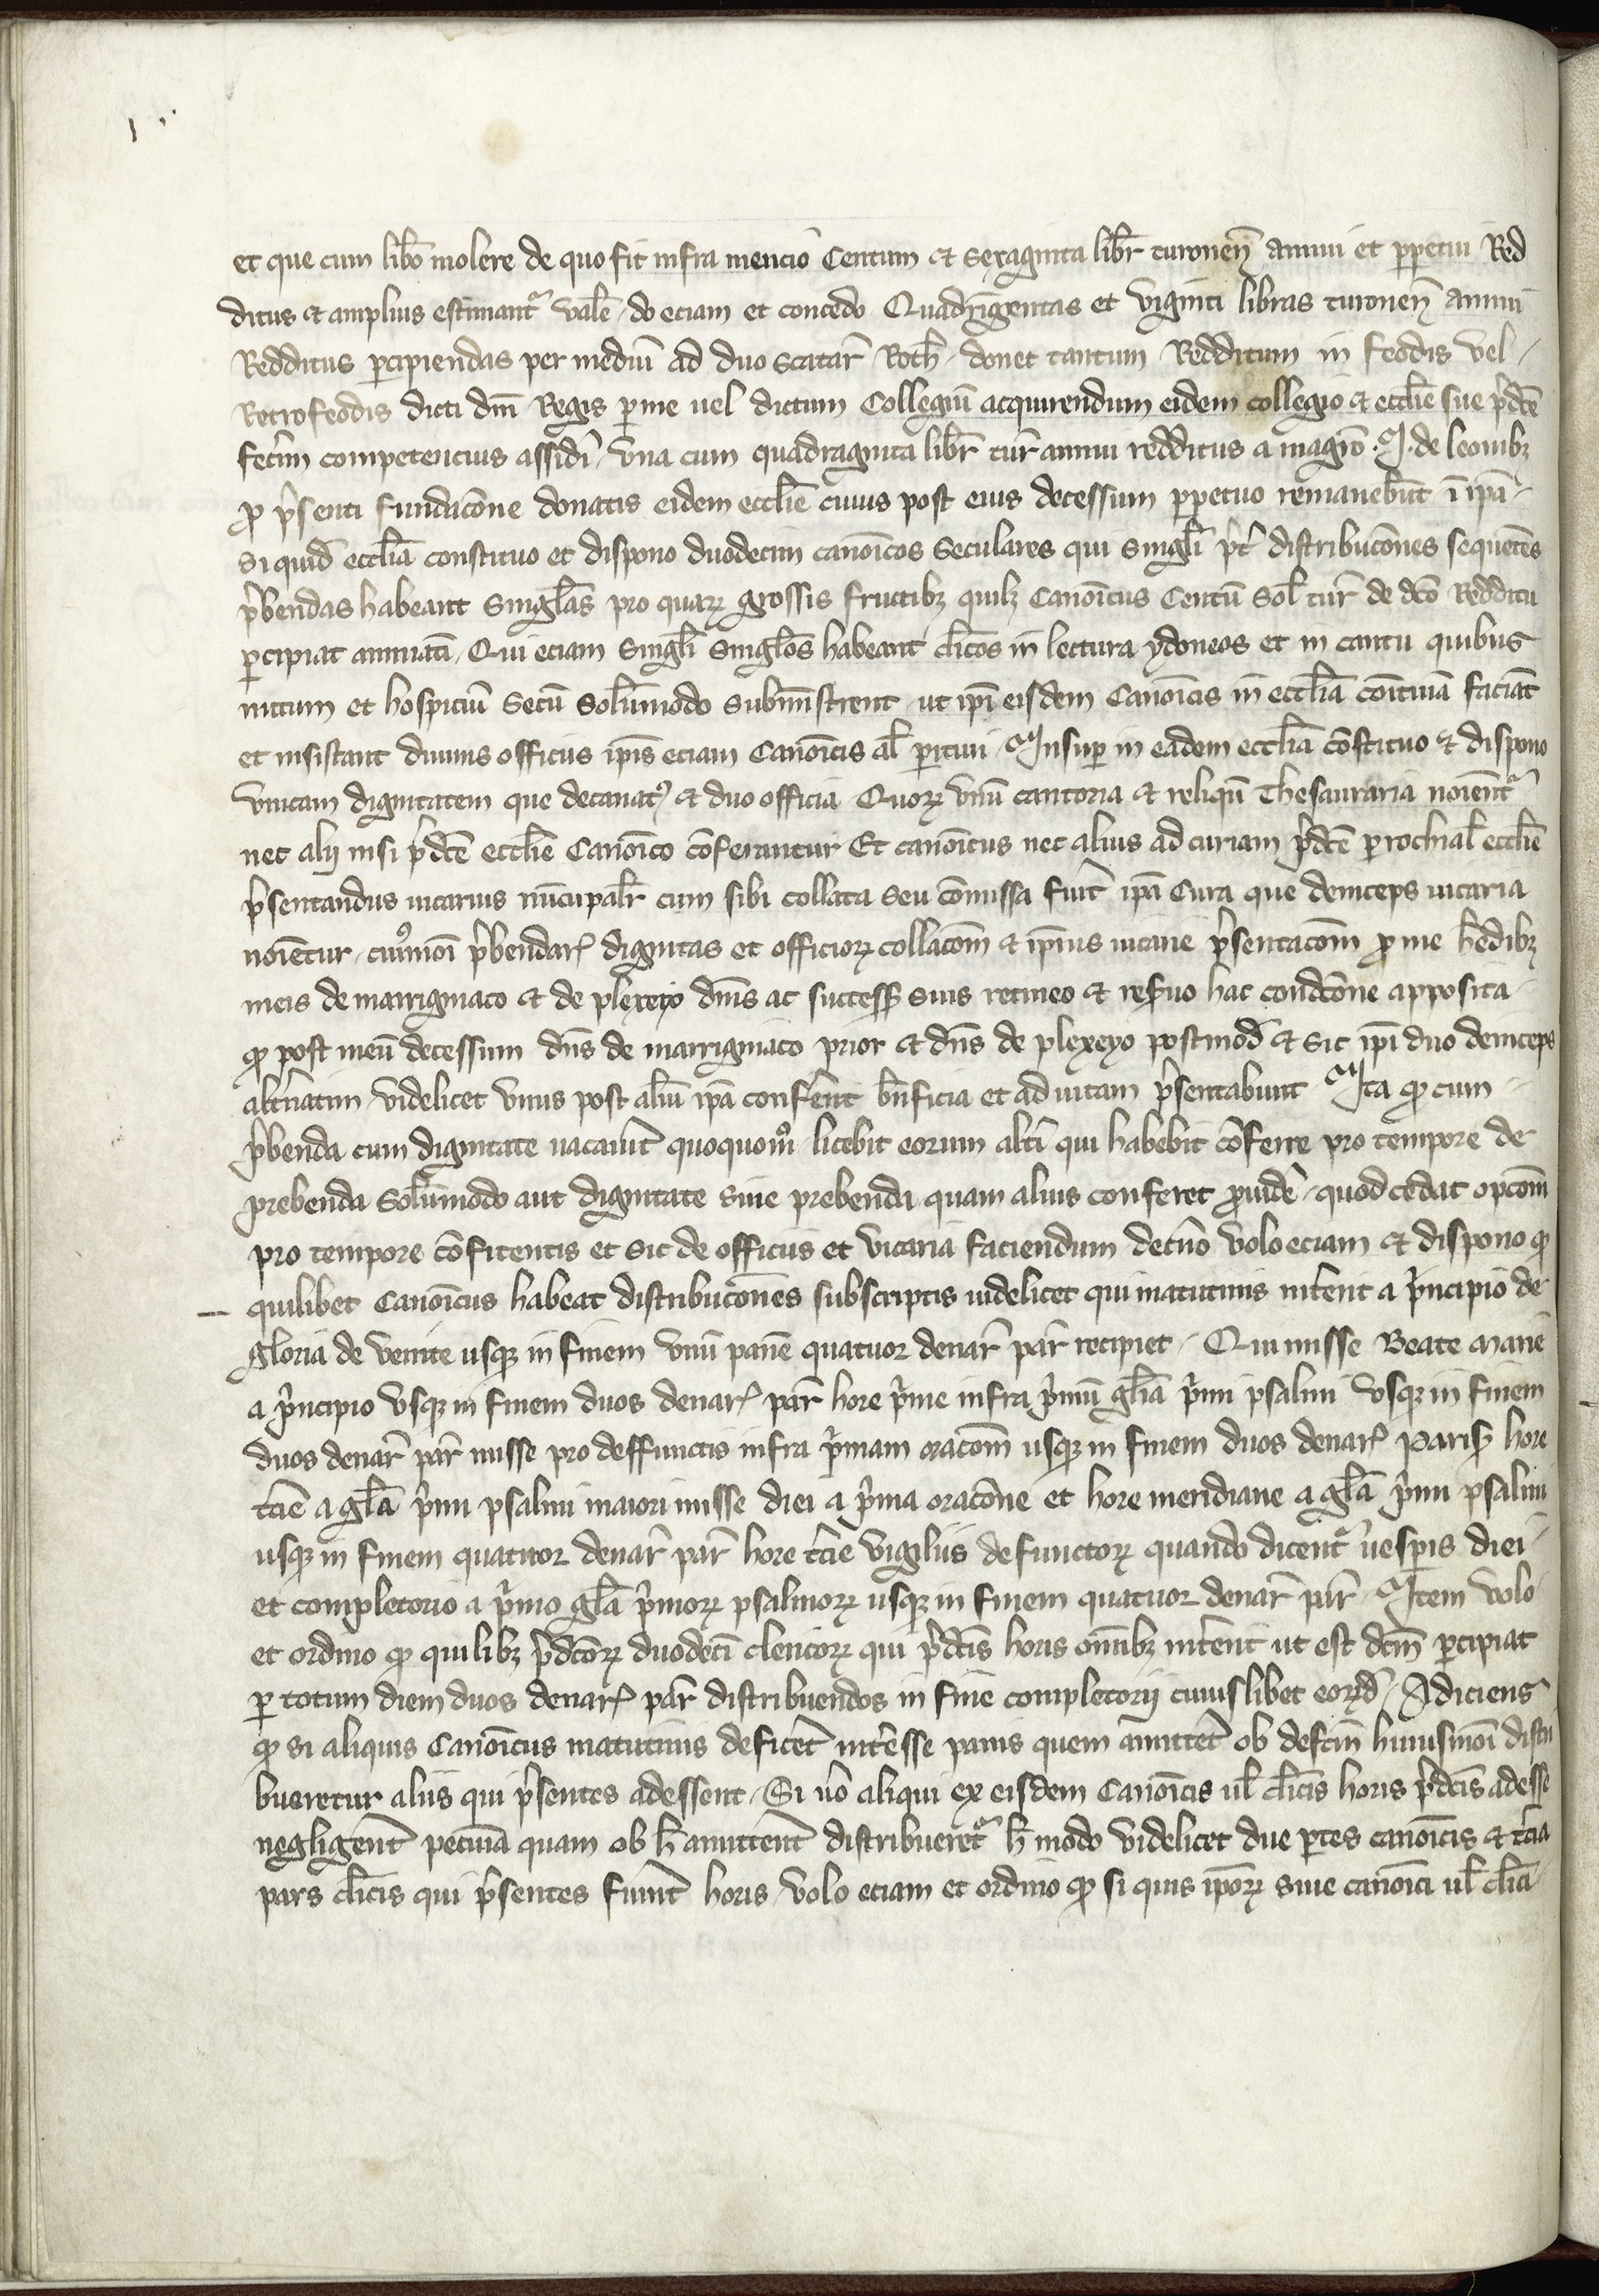 et que cum libo molere de quo fit infra mencio Centum et Sexaginta libr turonen annui et ppetui Red
ditus et amplius estimant vale do eciam et concedo Quadringentas et viginti libras turonen annui
Redditus pcipiendas per mediu ad duo Scacar Roth donec tantum Redditum in feodis vel
Retrofeodis dicti dni Regis p me uel dictum Collegiu acquirendum eidem collegio et ecclie sue pdce
fecim competencius assidi vna cum quadraginta libr tur annui redditus a magro J. de leonibz
p psenti fundacone donatis eidem ecclie cuius post eius decessum ppetuo remanebut i ipa
Siquid ecclia constituo et dispono duodecim canoicos Seculares qui Singli pt distribucones sequetes
pbendas habeant Singlas pro quaz grossis fructibz quilz Canoicus Centu Sol tur de dco Redditu
pcipiat annuati Qui eciam Singli Singlos habeant clicos in lectura ydoneos et in cantu quibus
uictum et hospiciu Secu Solumodo Subministrent ut ipi eisdem Canoicis in ecclia coitiua faciat
et insistant diuinis officiis ipis eciam Canoicis al pitiui Insup in eadem ecclia costituo et dispono
vnicam dignitatem que decanat et duo officia Quoz vnu cantoria et reliqu Thesauraria noient
nec alij nisi pdce ecclie Canoico coferantur Et canoicus nec alius ad curiam pdce prochial ecclie
psentandus uicarius nucupalr cum sibi collata Seu comissa fuit ipa Cura que deinceps uicaria
noietur cuiusmoi pbendar dignitas et officioz collacom et ipius uicarie psentacom p me hedibz
meis de marrigniaco et de plexeyo dnis ac success suis retineo et resuo hac condicone apposita
q post meu decessum dns de marrigniaco prior et dns de plexeyo postmod et Sic ipi duo deinceps
altnatim videlicet vnus post aliu ipa conferent bnficia et ad uitam psentabunt Ita q cum
pbenda cum dignitate uacauit quoquomo licebit eorum alti qui habebit coferre pro tempore de
prebenda Solumodo aut dignitate Siue prebenda quam alius conferet puide quod cedat opcom
pro tempore cofitentis et Sic de officiis et vicaria faciendum decno volo eciam et dispono q
quilibet Canoicus habeat distribucones subscriptis uidelicet qui matutinis intent a pncipio de
gloria de venite usqz in finem vnu pane quatuor denar par recipiet Qui misse Beate marie
a pncipio vsqz in finem duos denar par hore pme infra pmu glia pmi psalmi vsqz in finem
duos denar par misse pro deffunctis infra pmam oracom usqz in finem duos denar paris hore
tcie a gla pmi psalmi maiori misse diei a pma oracone et hore meridiane a gla pmi psalmi
usqz in finem quatuor denar par hore tcie vigiliis defunctoz quando dicent uespis diei
et completorio a pmo gla pmoz psalmoz usqz in finem quatuor denar par Item volo
et ordino q quilibz pdcoz duodeci clericoz qui pdcis horis omibz intent ut est dcm pcipiat
p totum diem duos denar par distribuendos in fine completorij cuiuslibet eorzd Adiciens
q si aliquis Canoicus matutinis deficet interesse panis quem amittet ob defcm huiusmoi distri
bueretur aliis qui psentes adessent Si uo aliqui ex eisdem Canoicis ul clicis horis pdcis adesse
negligent pecuia quam ob h amittent distribueret h modo videlicet due ptes canoicis et tcia
pars clicis qui psentes fuint horis volo eciam et ordino q si quis ipoz siue canoici ul clici